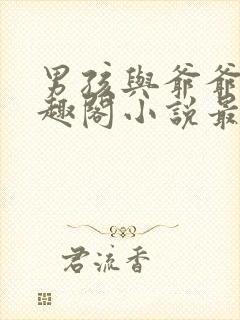 男孩與爺爺
趣閣小說最
君流香